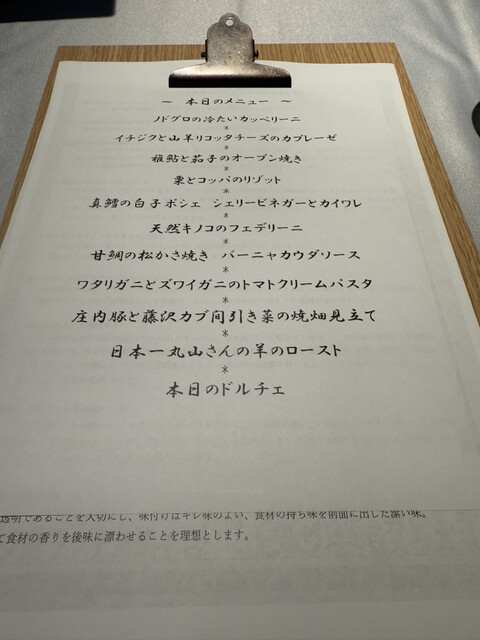 ～ 本日のメニュー ～
ノドグロの冷たいカッペリーニ
*
イチジクと山羊リコッタチーズのカプレーゼ
*
稚鮎と茄子のオーブン焼き
*
栗とコッパのリゾット
*
真鱈の白子ポシェ シェリービネガーとカイワレ
*
天然キノコのフェデリーニ
*
甘鯛の松かさ焼き バーニャカウダソース
*
ワタリガニとズワイガニのトマトクリームパスタ
*
庄内豚と藤沢カブ間引き菜の焼畑見立て
*
日本一丸山さんの羊のロースト
*
本日のドルチェ
透明であることを大切にし、味付けはキレ味のよい、食材の持ち味を前面に出した潔い味。
て食材の香りを後味に漂わせることを理想とします。